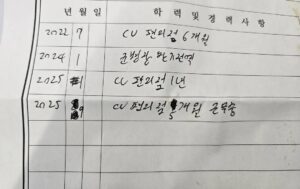 년 월 일 학 력 및 경 력 사 항
2022 7 CU 편의점 6개월
2024 1 군병장 만기전역
2025 1 CU 편의점 1년
2025 9 CU 편의점 개월 근무중